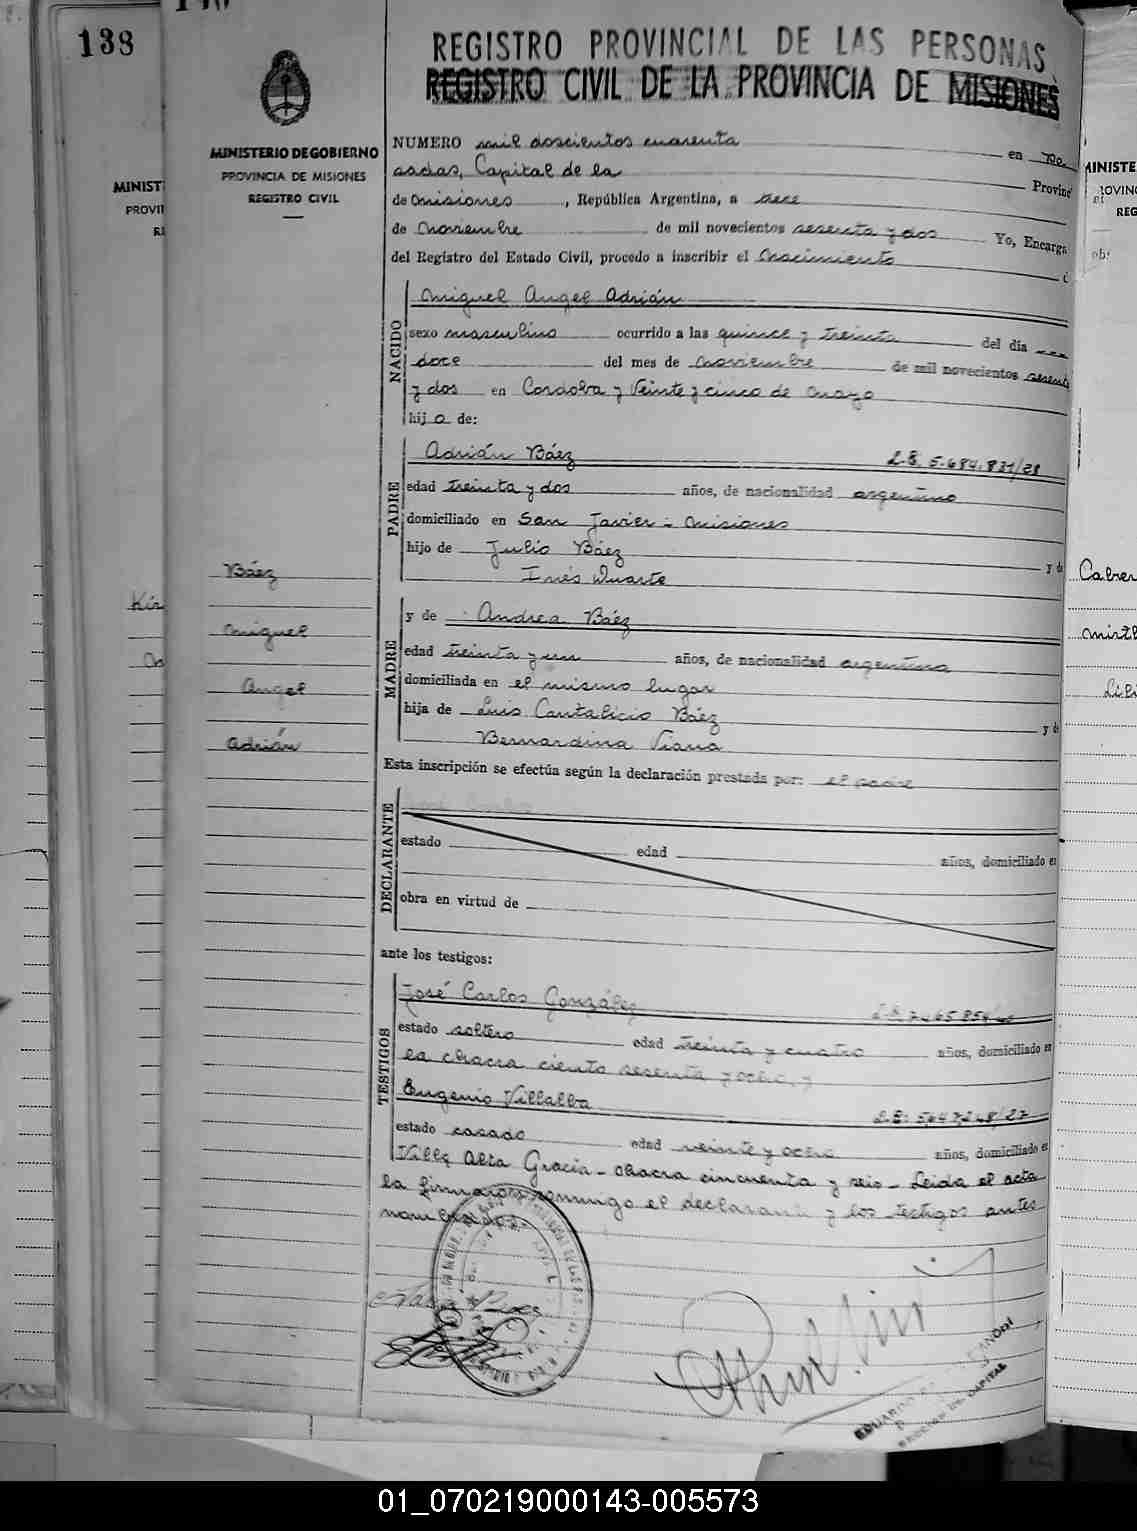 138
140
REGISTRO PROVINCIAL DE LAS PERSONAS
REGISTRO CIVIL DE LA PROVINCIA DE MISIONES
MINISTERIO DE GOBIERNO
PROVINCIA DE MISIONES
REGISTRO CIVIL
MINIST
PROVI
MINISTE
REG
NUMERO mil doscientos cuarenta en Po-
sadas, Capital de la Provinc
de Misiones, República Argentina, a trece
de Noviembre de mil novecientos sesenta y dos Yo, Encarga
del Registro del Estado Civil, procedo a inscribir el Nacimiento d
NACIDO
Miguel Angel Adrián
sexo masculino ocurrido a las quince y treinta del día
doce del mes de Noviembre de mil novecientos sesenta
y dos en Cordoba y Veinte y cinco de Mayo
hijo de:
PADRE
Adrián Báez L.E. 5.684.831/28
edad treinta y dos años, de nacionalidad argentino
domiciliado en San Javier - Misiones
hijo de Julio Báez y de
Inés Duarte
MADRE
y de Andrea Báez
edad treinta y un años, de nacionalidad argentina
domiciliada en el mismo lugar
hija de Luis Cantalicio Báez y de
Bernardina Viana
Báez
Miguel
Angel
Adrián
Esta inscripción se efectúa según la declaración prestada por: el padre
DECLARANTE
estado edad años, domiciliado en
obra en virtud de
ante los testigos:
TESTIGOS
José Carlos González
estado soltero edad treinta y cuatro años, domiciliado en
la chacra ciento sesenta y ocho, y
Eugenio Villalba L.E. 5.647.248/27
estado casado edad veinte y ocho años, domiciliado en
Villa Alta Gracia - chacra cincuenta y seis - Leida el acta
la firmaron conmigo el declarante y los testigos antes
nombrados.-
Cabrer
Mirth
Lili
01_070219000143-005573